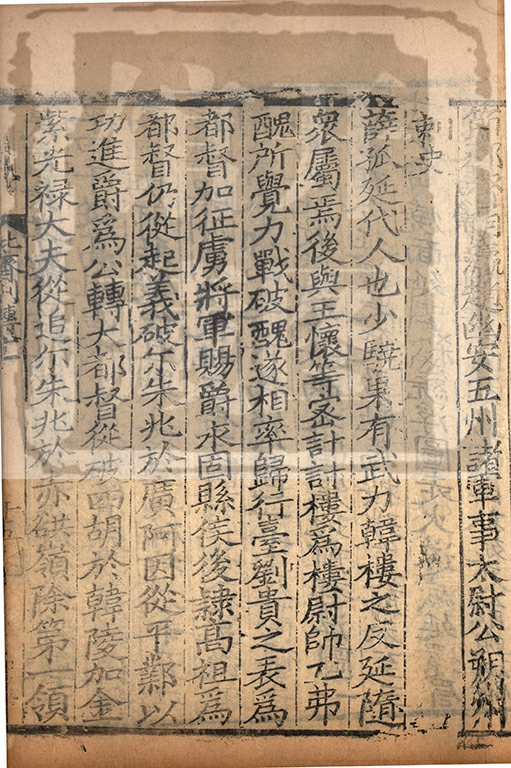 幽安五州諸軍事太尉公朔州
刺史
薛孤延代人也少驍果有武力韓樓之反延隨
衆屬焉後與王懷等宻計討樓爲樓尉帥乙弗
醜所覺力戰破醜遂相率歸行臺劉貴之表爲
都督加征虜將軍賜爵永固縣侯後隷髙祖爲
都督仍從起義破尒朱兆於廣阿因從平鄴以
功進爵爲公轉大都督從破四胡於韓陵加金
紫光禄大夫從追尒朱兆於赤谼嶺除第一領